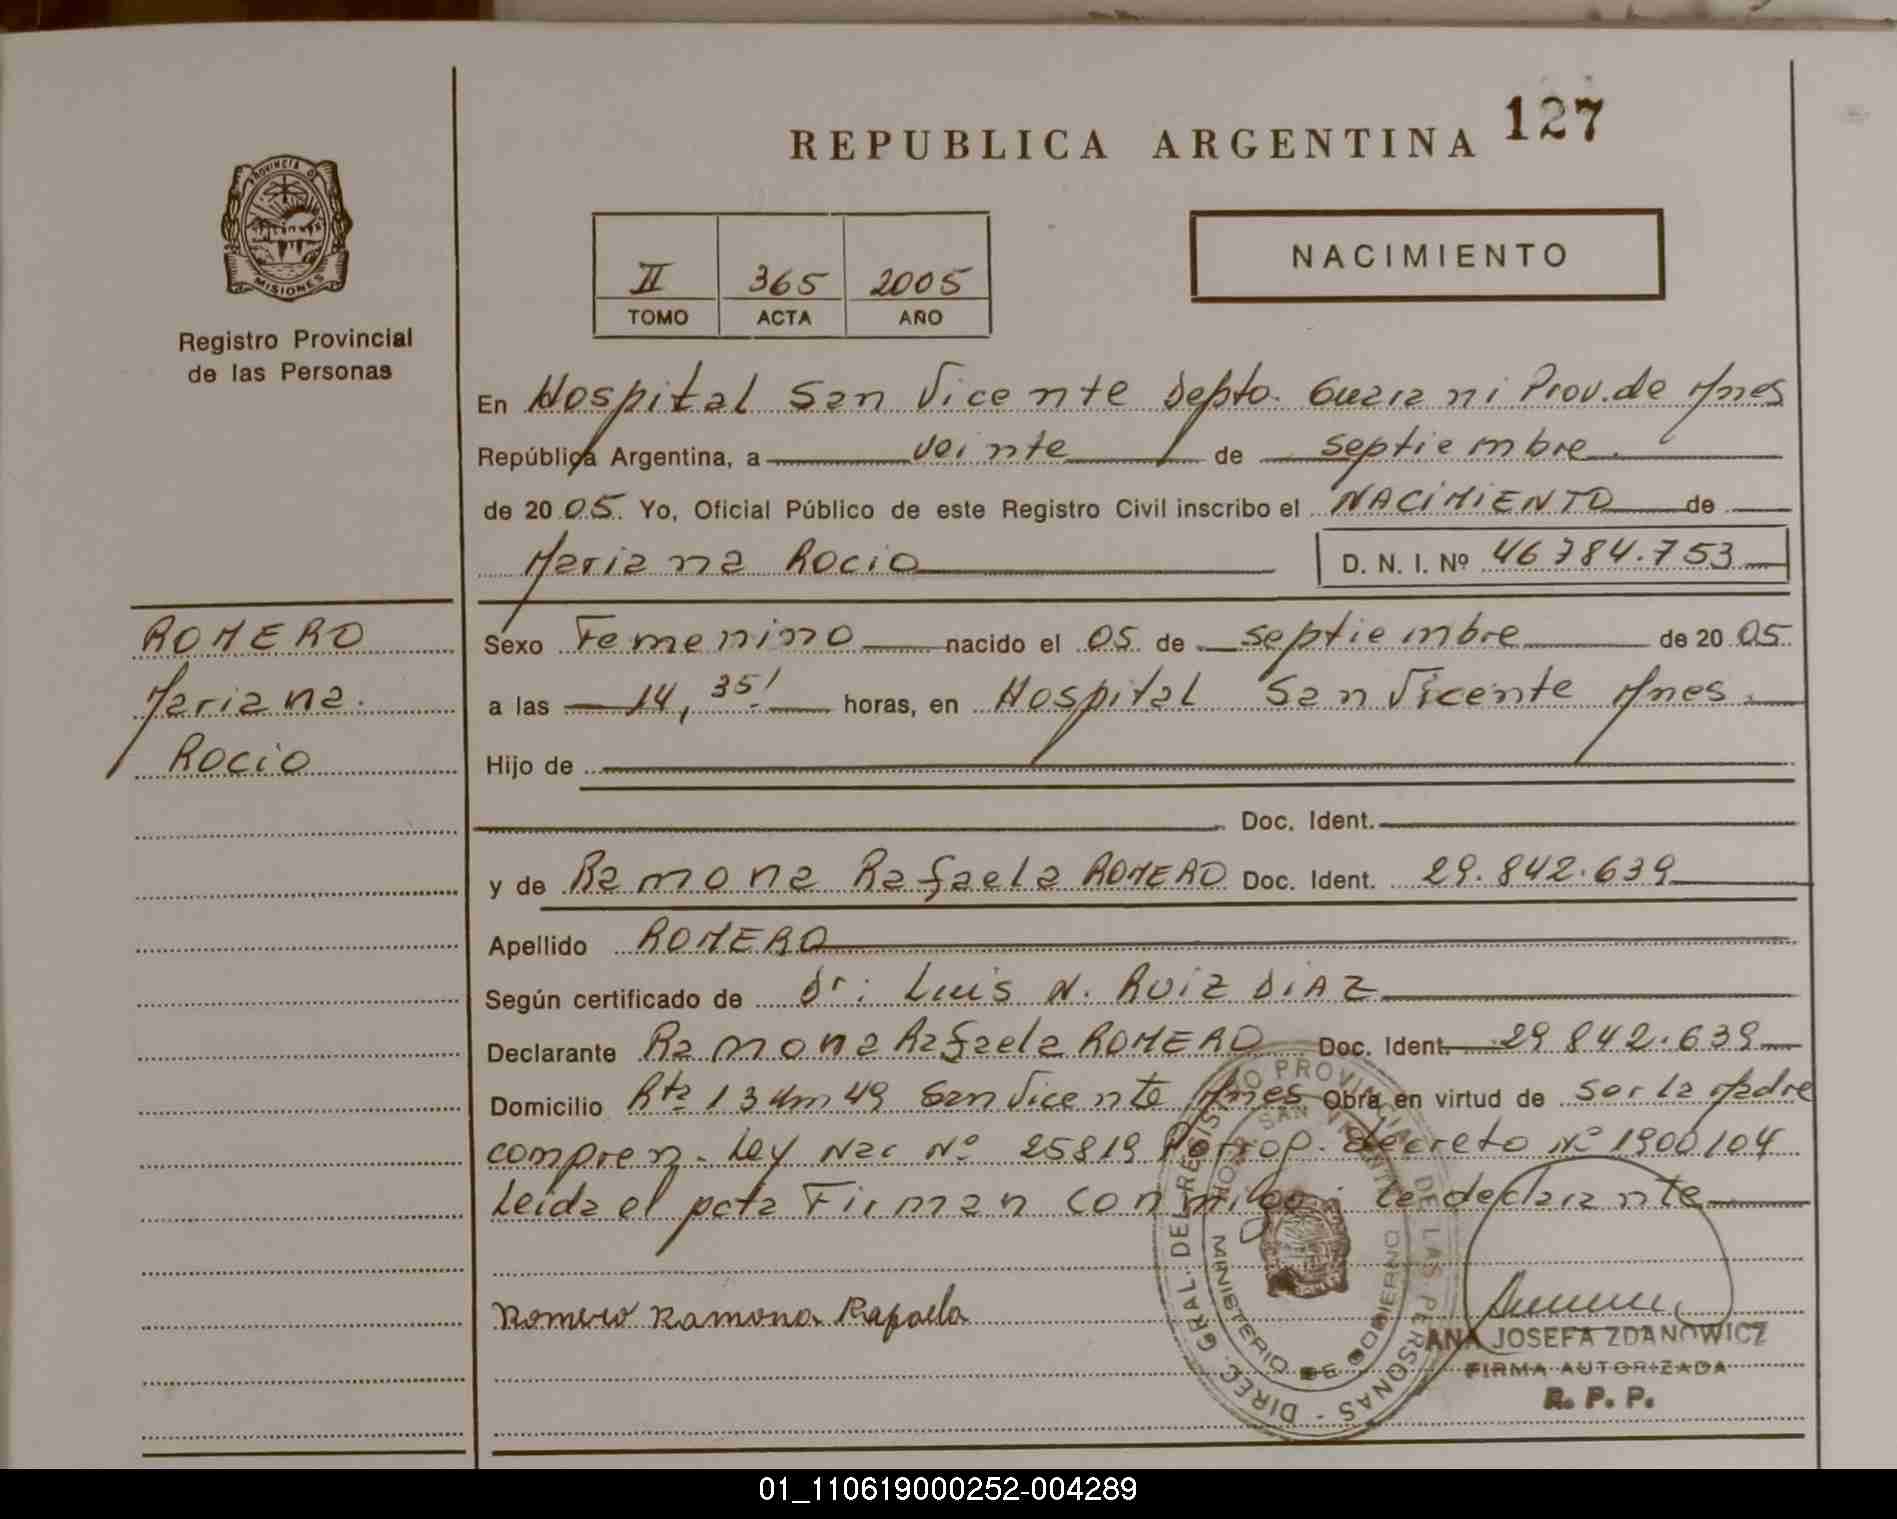 REPUBLICA ARGENTINA 127
PROVINCIA DE
MISIONES
Registro Provincial
de las Personas
NACIMIENTO
II 365 2005
TOMO ACTA AÑO
En Hospital San Vicente Depto. Guarani Prov. de Mnes
República Argentina, a veinte de septiembre
de 2005. Yo, Oficial Público de este Registro Civil inscribo el NACIMIENTO de
Mariana Rocio D. N. I. Nº 46784.753
ROMERO
Mariana.
Rocio
Sexo Femenino nacido el 05 de septiembre de 2005.
a las 14,35' horas, en Hospital San Vicente Mnes.
Hijo de
Doc. Ident.
y de Ramona Rafaela ROMERO Doc. Ident. 29.842.639
Apellido ROMERO
Según certificado de Dr: Luis N. RUIZ DIAZ
Declarante Ramona Rafaela ROMERO Doc. Ident. 29842.639
Domicilio Rta 13 Km 49 San Vicente Mnes Obra en virtud de ser la Madre
compren. Ley Nac Nº 25819 Decreto Nº 1900/04
Leida el acta Firman conmigo: la declarante
Romero Ramona Rafaela
DIREC. GRAL. DEL REGISTRO PROVINCIAL DE LAS PERSONAS -
SAN VICENTE
MINISTERIO DE GOBIERNO
ANA JOSEFA ZDANOWICZ
FIRMA AUTORIZADA
R. P. P.
01_110619000252-004289